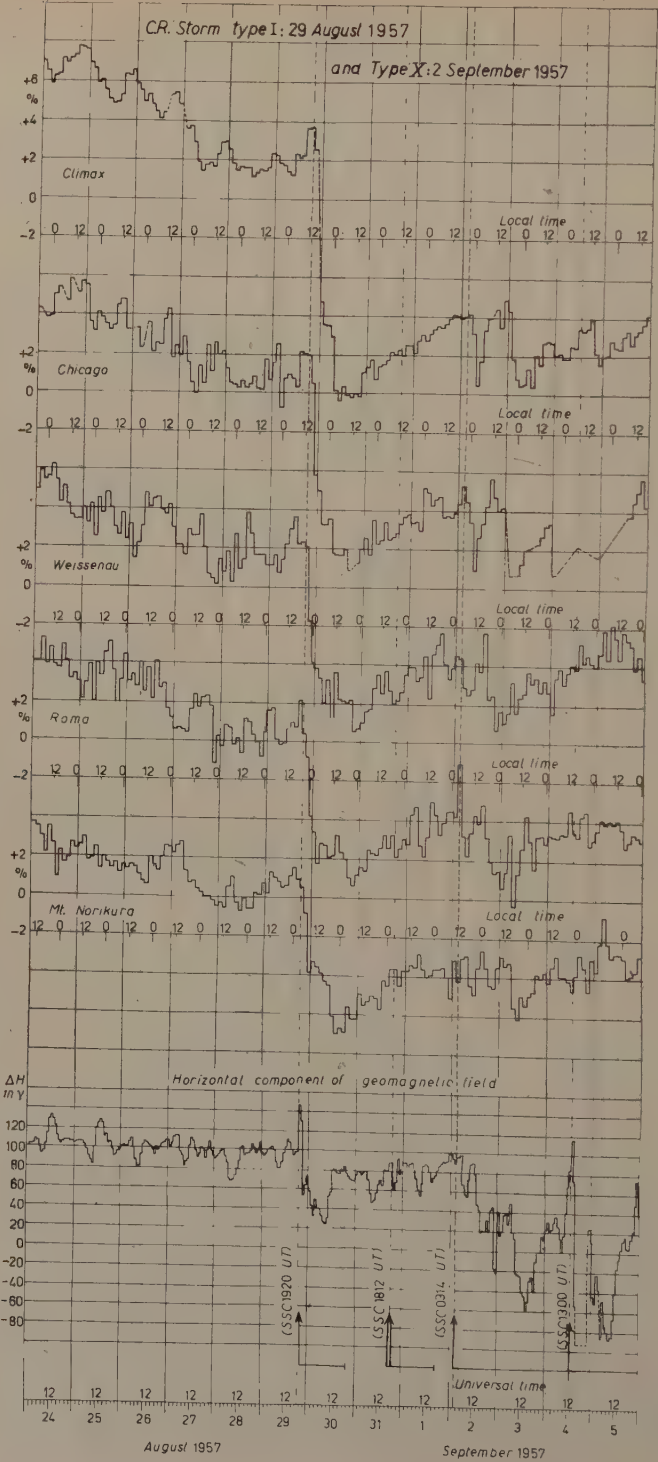 C.R. Storm type I: 29 August 1957
and Type X: 2 September 1957
+6
%
+4
+2
Climax
0
Local time
-2
0 12 0 12 0 12 0 12 0 12 0 12 0 12 0 12 0 12 0 12 0 12 0 12 0 12
+2
%
Chicago
0
Local time
-2
0 12 0 12 0 12 0 12 0 12 0 12 0 12 0 12 0 12 0 12 0 12 0 12 0 12
+2
%
Weissenau
0
Local time
-2
12 0 12 0 12 0 12 0 12 0 12 0 12 0 12 0 12 0 12 0 12 0 12 0 12 0
+2
%
Roma
0
Local time
-2
12 0 12 0 12 0 12 0 12 0 12 0 12 0 12 0 12 0 12 0 12 0 12 0 12 0
+2
%
0
Mt. Norikura
Local time
-2
12 0 12 0 12 0 12 0 12 0 12 0 12 0 12 0 12 0 12 0 12 0 12 0 0
Horizontal component of geomagnetic field
ΔH
in γ
100
80
60
40
20
0
-20
-40
-60
-80
(SSC 1920 UT)
(SSC 1812 UT)
(SSC 0314 UT)
(SSC 1300 UT)
Universal time
12 12 12 12 12 12 12 12 12 12 12 12 12
24 25 26 27 28 29 30 31 1 2 3 4 5
August 1957
September 1957